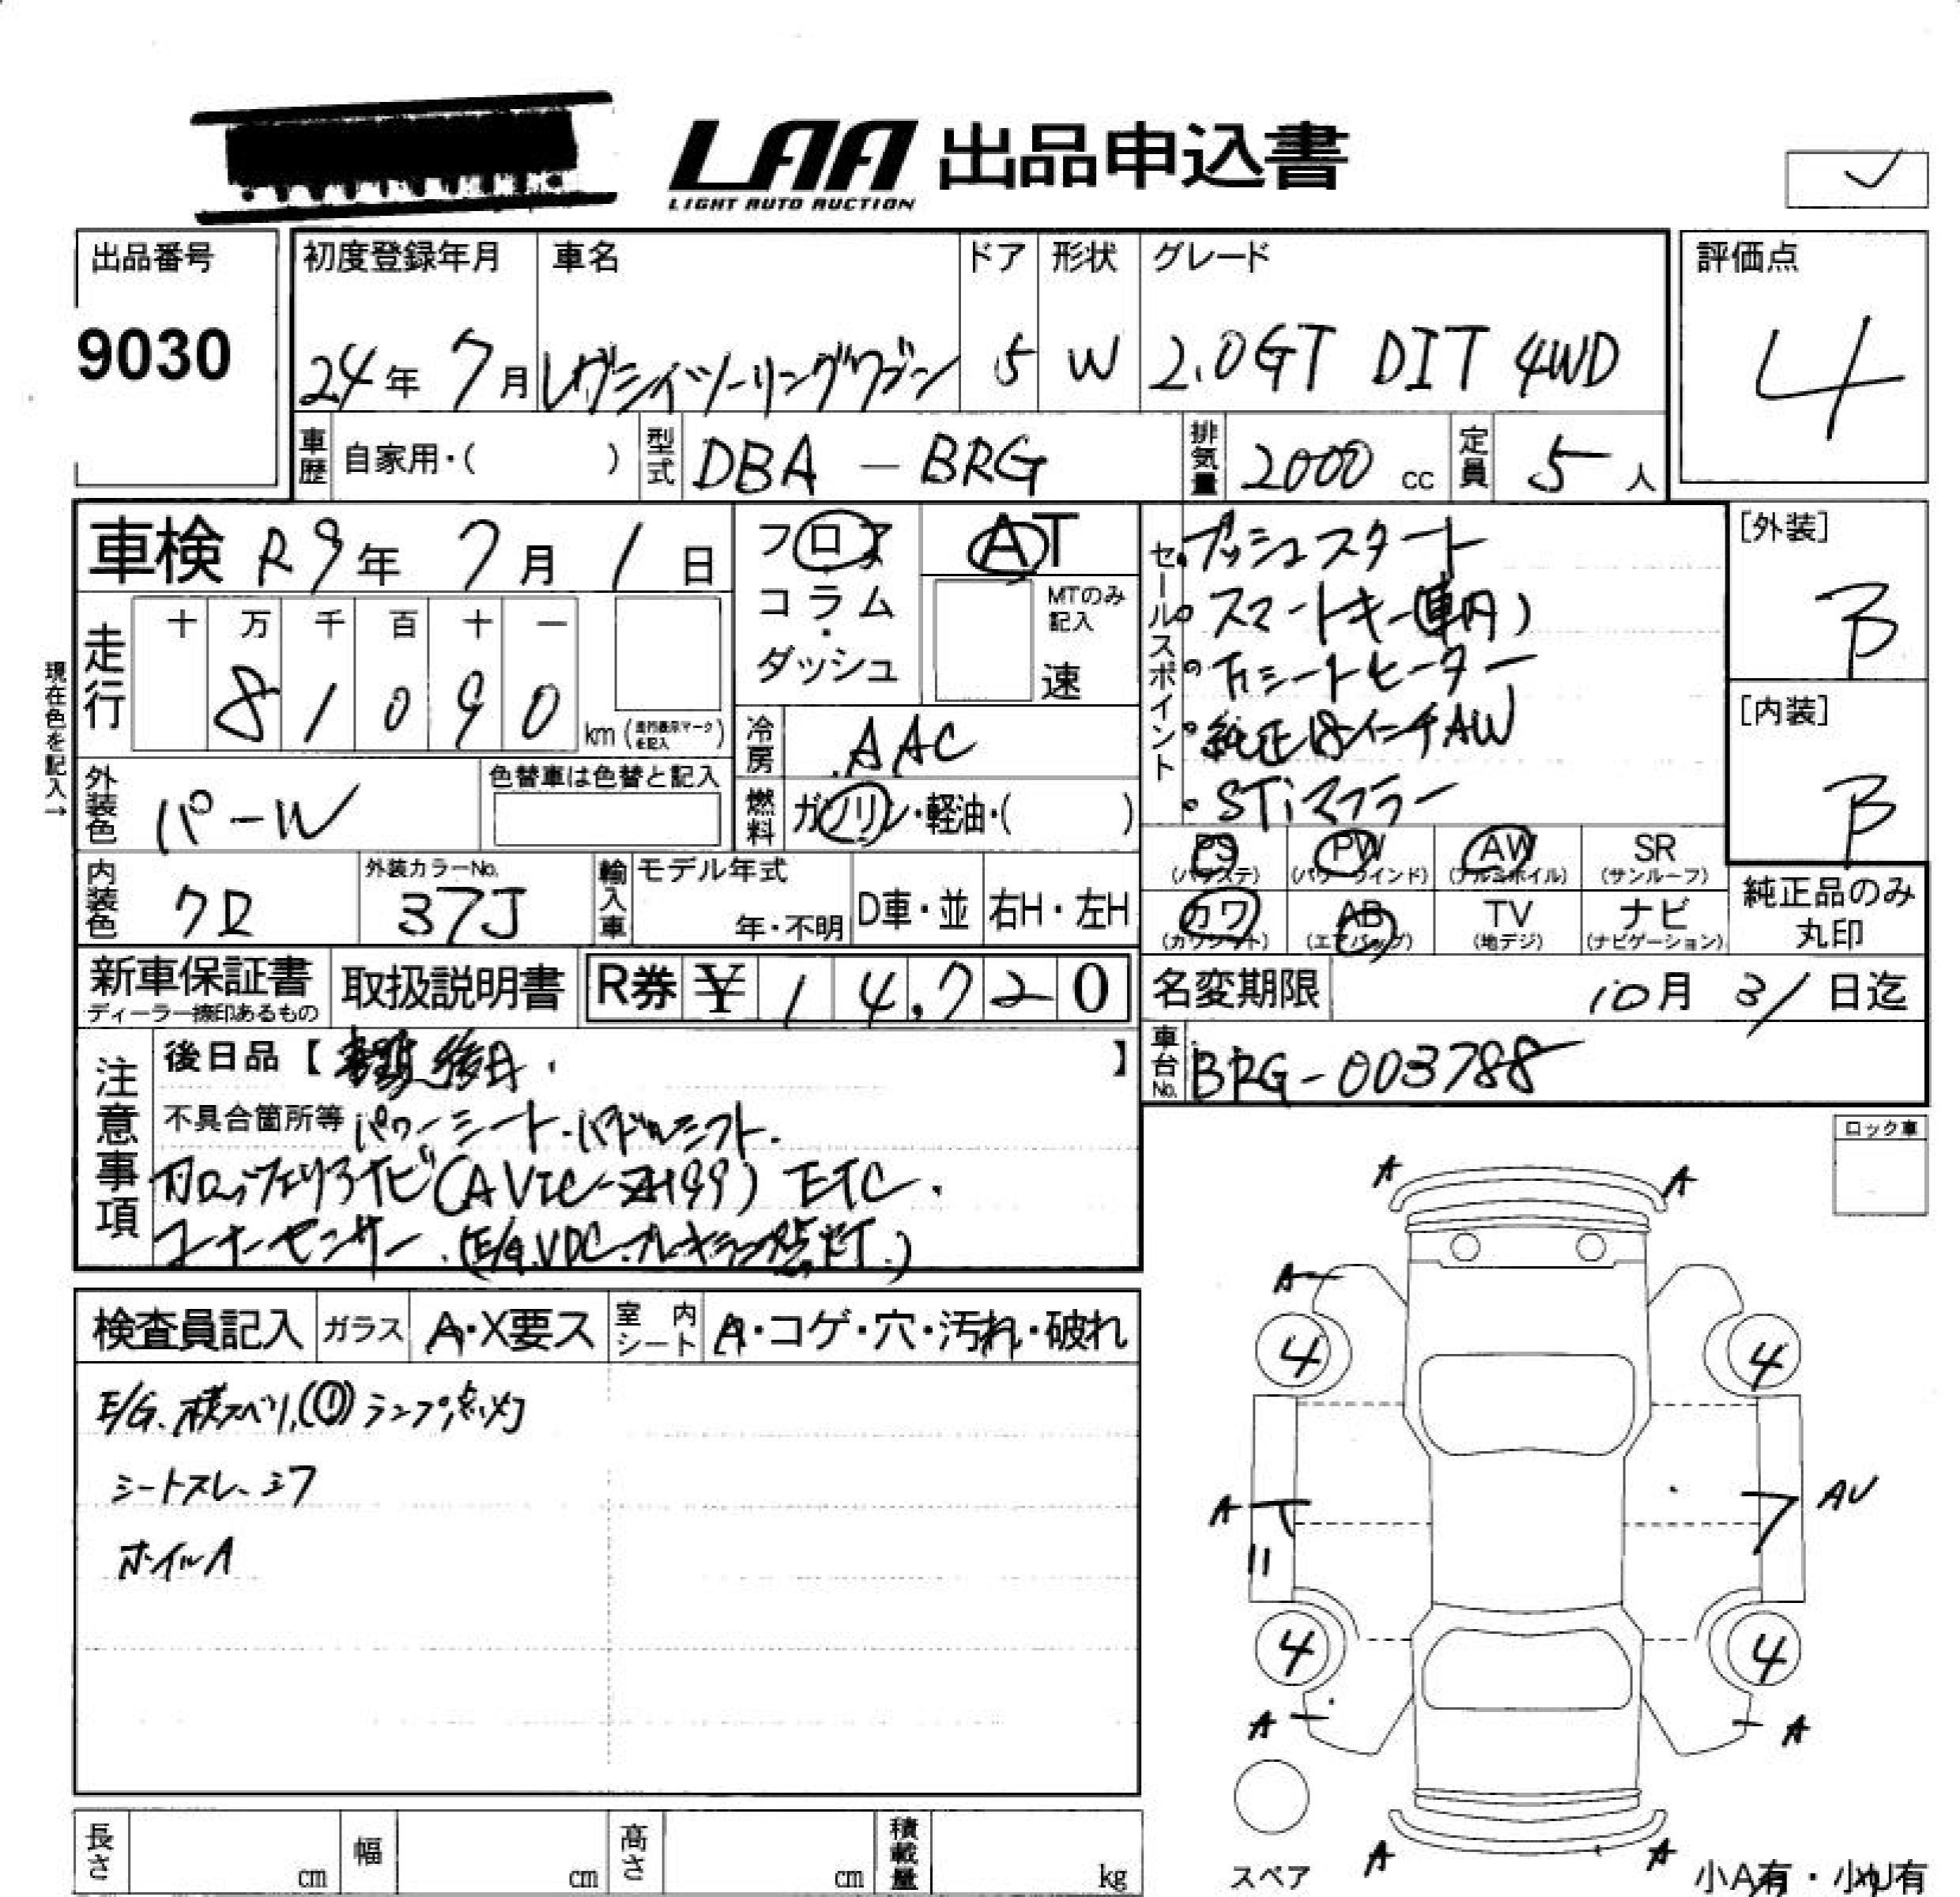 LAA 出品申込書
LIGHT AUTO AUCTION
出品番号
9030
初度登録年月
24年 7月
車名
レガシィツーリングワゴン
ドア
5
形状
W
グレード
2.0GT DIT 4WD
評価点
4
車歴 自家用・( )
型式 DBA-BRG
排気量 2000 cc
定員 5人
車検 R9年 7月 1日
フロア
コラム
・
ダッシュ
AT
MTのみ
記入
速
現在色を記入→
走行
十 万 千 百 十 一
8 1 0 9 0
km (走行表示マークを記入)
冷房 AAC
燃料 ガソリン・軽油・( )
外装色 パーW
色替車は色替と記入
内装色 クロ
外装カラーNo.
37J
輸入車
モデル年式
年・不明
D車・並
右H・左H
セールスポイント
・プッシュスタート
・スマートキー(車内)
・シートヒーター
・純正18インチAW
・STiマフラー
[外装]
B
[内装]
B
PS
(パワステ)
PW
(パワーウインド)
AW
(アルミホイル)
SR
(サンルーフ)
カワ
(カワシート)
AB
(エアバッグ)
TV
(地デジ)
ナビ
(ナビゲーション)
純正品のみ
丸印
新車保証書
ディーラー捺印あるもの
取扱説明書
R券 ¥ 14,720
名変期限 10月 31日迄
車台No. BRG-003788
注意事項
後日品【 後日. 】
不具合箇所等 パワーシート.パドルシフト.
カロッツェリアナビ(AVIC-ZH99) ETC.
コーナーセンサー.(E/G.VDC.ブレーキランプ点灯.)
検査員記入
ガラス A・X要ス
室内シート A・コゲ・穴・汚れ・破れ
E/G.横スベリ.(!)ランプ点灯
シートスレ、シワ
ホイルA
ロック車
A A
A
4 4
A AU
4 4
A A
A A
スペア
小A有・小U有
長さ cm
幅 cm
高さ cm
積載量 kg